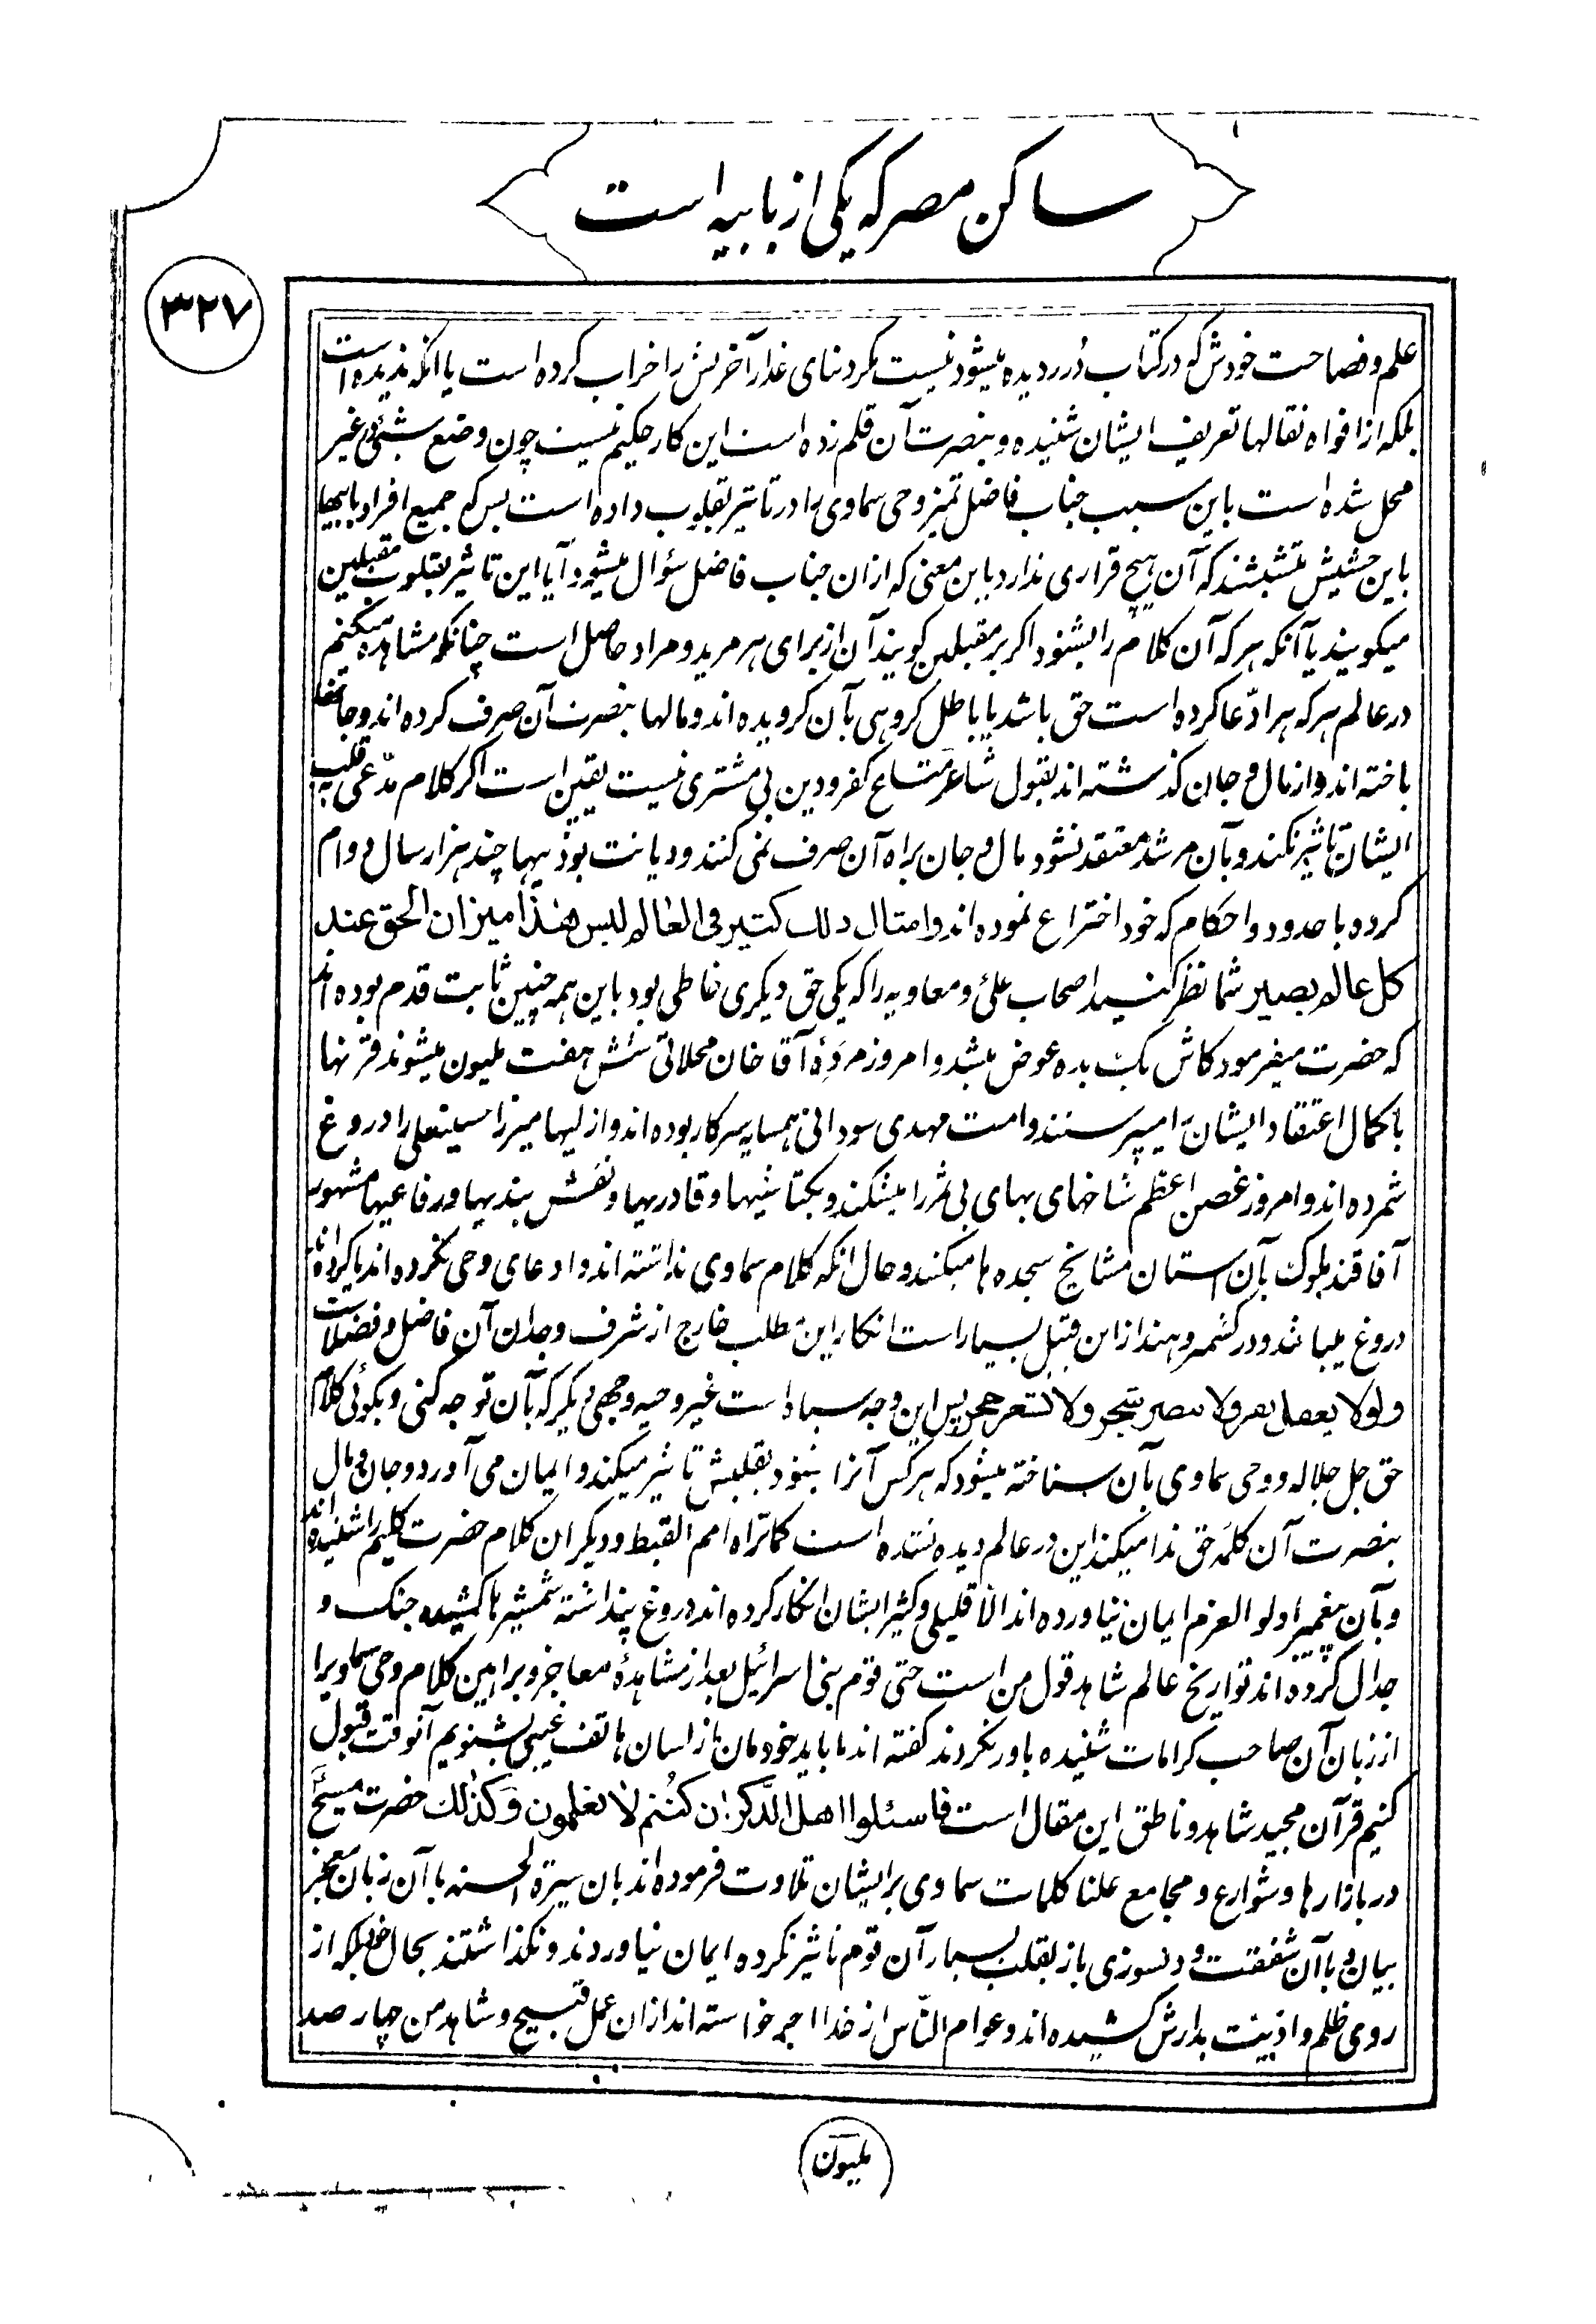 ساکن مصر که یکی از بابیه است
۳۲۷
علم و فصاحت خودش که در کتاب دُرر دیده میشود نیست مگر دنیای غدار آخرتش را خراب کرده است یا انکه ندیده است
بلکه از افواه نقالها تعریف ایشان شنیده و بنصرت آن قلم زده است این کار حکیم نیست چون وضع شیئی در غیر
محل شده است باین سبب جناب فاضل تمیز وحی سماوی را در تاثیر بقلوب داده است بس که جمیع افراد بابیها
باین حشیش متشبثند که آن هیچ قراری ندارد باین معنی که از ان جناب فاضل سؤال میشود آیا این تاثیر بقلوب مقبلین
میکویند یا آنکه هر که آن کلام را بشنود اکر بر مقبلین کویند آن از برای هر مرید و مراد حاصل است چنانکه مشاهده میکنیم
در عالم هر که هر ادّعا کرده است حق باشد یا باطل کروهی بآن کرویده اند و مالها بنصرت آن صرف کرده اند و جانها
باخته اند و از مال و جان کذشته اند بقول شاعر متاع کفر و دین بی مشتری نیست یقین است اکر کلام مدّعی بقلب
ایشان تاثیر نکند و بآن مرشد معتقد نشود مال و جان براه آن صرف نمی کنند و دیانت بوذیها چند هزار سال دوام
کرده با حدود و احکام که خود اختراع نموده اند و امثال ذلک کثیر فی العالم لیس هذا میزان الحق عند
کل عالم بصیر شما نظر کنید اصحاب علی و معاویه را که یکی حق دیکری خاطی بود باین همه چنین ثابت قدم بوده اند
که حضرت میفرمود کاش یک بده عوض میشد و امروز مَرَدهٔ آقا خان محلاتی شش هفت ملیون میشوند قرنها
با کمال اعتقاد ایشان را میپرستند و امت مهدی سودانی همسایه سرکار بوده اند و ازلیها میرزا حسینعلی را دروغ
شمرده اند و امروز غصن اعظم شاخهای بهای بی ثمر را میشکند و بکتاشیها و قادریها و نقش بندیها و رفاعیها مشهور
آفاقند ملوک بآن استان مشایخ سجده ها میکنند و حال انکه کلام سماوی نداشته اند و ادعای وحی نکرده اند یا کرده اند
دروغ میباشد و در کشمر و هند از این قبیل بسیار است انکار این مطلب خارج از شرف وجدان آن فاضل و فضلا است
ولو لا یعقل بقر ولا یبصر شجر ولا یشعر حجر پس این وجه سیاه است غیر وجیه وجهی دیکر که بآن توجه کنی و بکوئی کلام
حق جل جلاله و وحی سماوی بآن شناخته میشود که هر کس آنرا شنود بقلبش تاثیر میکند و ایمان می آورد و جان و مال
بنصرت آن کلمه حق فدا میکند این در عالم دیده نشده است کما تراه امم القبط و دیکران کلام حضرت کلیم را شنیده اند
و بآن پیغمبر اولو العزم ایمان نیاورده اند الا قلیلی و کثیر ایشان انکار کرده اند دروغ پنداشته شمشیرها کشیده جنک و
جدال کرده اند تواریخ عالم شاهد قول من است حتی قوم بنی اسرائیل بعد از مشاهدهٔ معاجز و براهین کلام وحی سماویرا
از زبان آن صاحب کرامات شنیده باور نکردند کفته اند ما باید خودمان از اسان هاتف غیبی بشنویم آنوقت قبول
کنیم قرآن مجید شاهد و ناطق این مقال است فاسئلوا اهل الذّکر ان کنتم لا تعلمون و کذلک حضرت مسیح
در بازارها و شوارع و مجامع علنا کلمات سماوی بر ایشان تلاوت فرموده اند بان سیرة الحسنه با آن زبان معجز
بیان و با آن شفقت و دلسوزی باز بقلب بسیار آن قوم تاثیر نکرده ایمان نیاوردند و نکذاشتند بحال خود بلکه از
روی ظلم و اذیت بدارش کشیده اند و عوام النّاس از خدا اجر خواسته اند از ان عمل قبیح و شاهد من چهار صد
ملیون